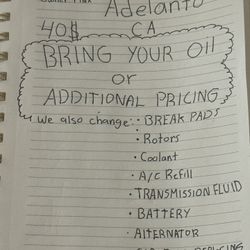 Adelanto
40$ CA
BRING YOUR OIL
or
ADDITIONAL PRICING
We also change: • BREAK PADS
• Rotors
• Coolant
• A/C Refill
• TRANSMISSION FLUID
• BATTERY
• ALTERNATOR